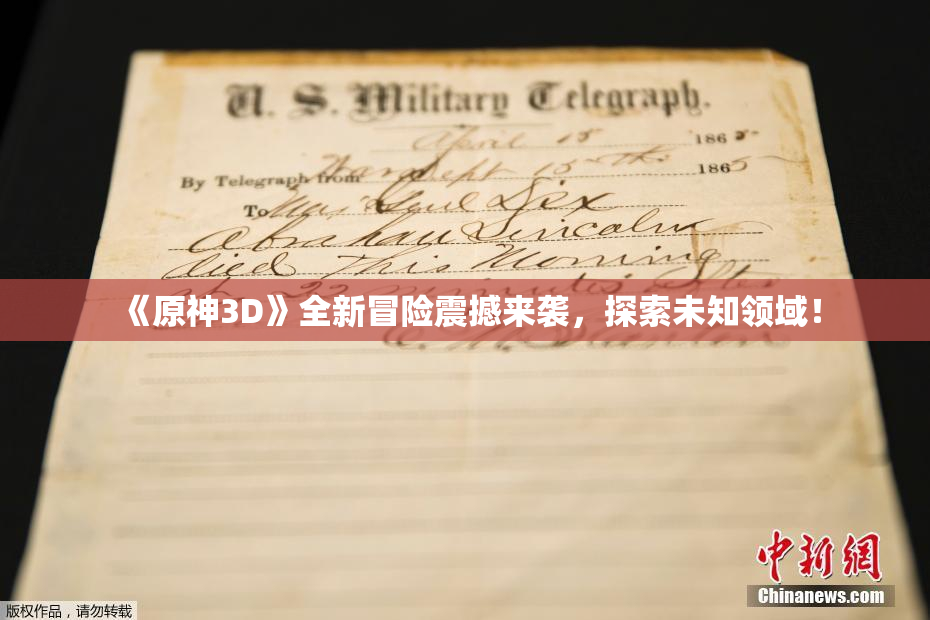 U. S. Military Telegraph.
April 15 1865
By Telegraph from War Dept 15th 1865
To Maj Genl Dix
Abraham Lincoln
died This Morning
at 22 minutes after
《原神3D》全新冒险震撼来袭，探索未知领域！
Stanton
中新网
Chinanews.com
版权作品，请勿转载